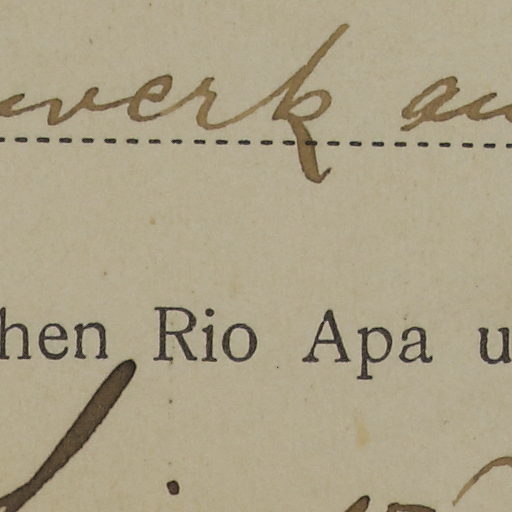 werk au
hen Rio Apa u